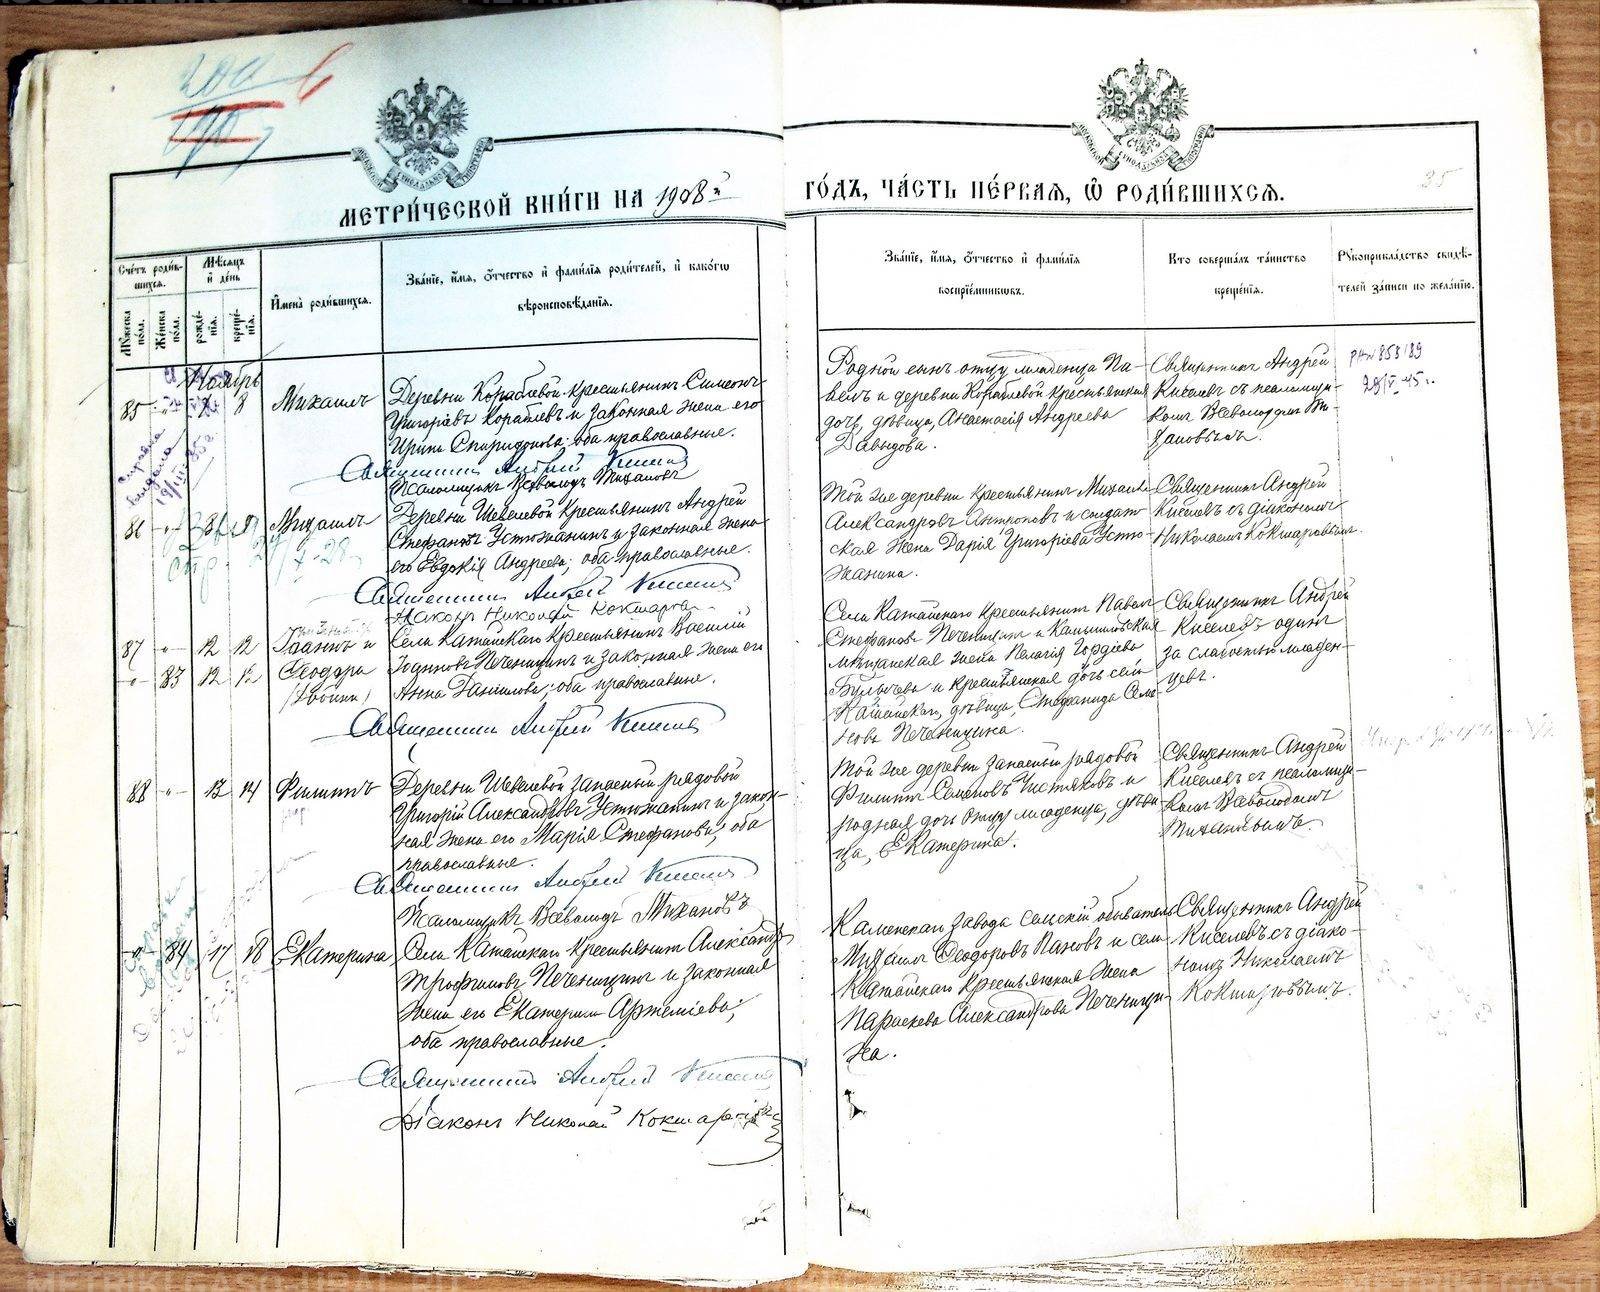 МЕТРИ́ЧЕСКОЙ КНИ́ГИ НА 1908й
ГО́ДЪ, ЧА́СТЬ ПЕ́РВАЯ, Ѡ РОДИ́ВШИХСЯ.
35
Сче́тъ роди́в-
шихся.
Мѣ́сяцъ
и́ де́нь
Му́жеска по́ла.
Же́нска по́ла.
рожде́-
нія.
креще́-
нія.
Имена̀ роди́вшихся.
Зва́ніе, и́мя, о́тчество и́ фами́лія роди́телей, и́ како́гѡ
вѣроисповѣ́данія.
Зва́ніе, и́мя, о́тчество и́ фами́лія
воспріе́мниковъ.
Кто̀ соверша́лъ та́инство
креще́нія.
Рукоприкла́дство свидѣ́-
телей за́писи по жела́нію.
Ноябрь
85 8 Михаилъ
Деревни Кораблевой крестьянинъ Симеонъ
Григоріевъ Кораблевъ и законная жена его
Ирина Спиридонова; оба православные.
Священникъ Андрей Киселевъ
Псаломщикъ Всеволодъ Тихановъ
Родной сынъ отцу младенца Па-
велъ и деревни Кораблевой крестьянская
дочь, дѣвица, Анастасія Андреева
Давыдова.
Священникъ Андрей
Киселевъ съ псаломщи-
комъ Всеволодомъ Ти-
хановымъ.
86 Михаилъ
Деревни Шевелевой крестьянинъ Андрей
Стефановъ Устюжанинъ и законная жена
его Евдокія Андреева; оба православные.
Священникъ Андрей Киселевъ
Діаконъ Николай Кокшаровъ
Той же деревни крестьянинъ Михаилъ
Александровъ Антроповъ и солдат-
ская жена Дарія Григоріева Устю-
жанина.
Священникъ Андрей
Киселевъ съ діакономъ
Николаемъ Кокшаровымъ.
87 12 12 Іоаннъ и
83 12 12 Ѳеодора
(двойни)
Села Катайскаго крестьянинъ Василій
Іоанновъ Печеницинъ и законная жена его
Анна Даніилова; оба православные.
Священникъ Андрей Киселевъ
Села Катайскаго крестьянинъ Павелъ
Стефановъ Печеницинъ и Камышловская
мѣщанская жена Пелагія Гордіева
Булычева и крестьянская дочь села
Катайскаго, дѣвица, Стефанида Семе-
нова Печеницина.
Священникъ Андрей
Киселевъ одинъ
за слабостью младен-
цевъ.
88 13 14 Филиппъ
Деревни Шевелевой запасный рядовой
Григорій Александровъ Устюжанинъ и закон-
ная жена его Марія Стефанова; оба
православные.
Священникъ Андрей Киселевъ
Псаломщикъ Всеволодъ Тихановъ
Той же деревни запасный рядовой
Филиппъ Семеновъ Чистяковъ и
родная дочь отцу младенца, дѣви-
ца, Екатерина.
Священникъ Андрей
Киселевъ съ псаломщи-
комъ Всеволодомъ
Тихановымъ.
84 17 18 Екатерина
Села Катайскаго крестьянинъ Александръ
Трофимовъ Печеницинъ и законная
жена его Екатерина Артеміева;
оба православные.
Священникъ Андрей Киселевъ
Діаконъ Николай Кокшаровъ
Каменскаго завода сельскій обыватель
Михаилъ Ѳеодоровъ Пановъ и села
Катайскаго крестьянская жена
Параскева Александрова Печеници-
на.
Священникъ Андрей
Киселевъ съ діако-
номъ Николаемъ
Кокшаровымъ.